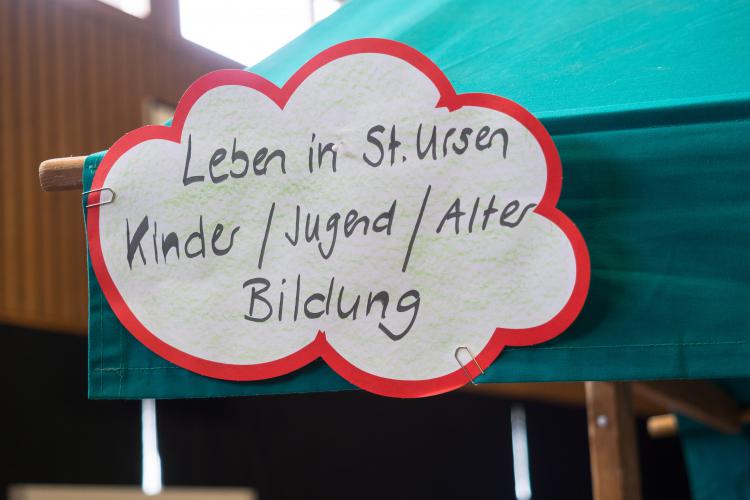 Leben in St. Ursen
Kinder / Jugend / Alter
Bildung